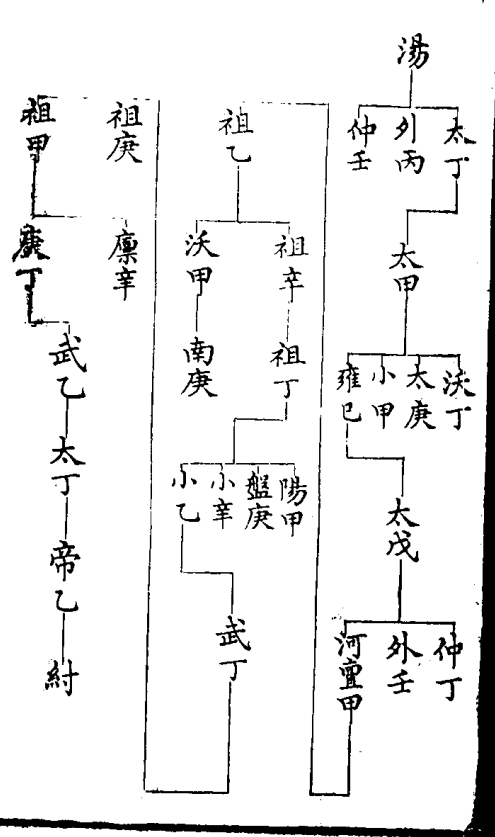 湯
太丁
外丙
仲壬
太甲
沃丁
太庚
小甲
雍已
太戊
仲丁
外壬
河亶甲
祖乙
祖辛
沃甲
祖丁
南庚
陽甲
盤庚
小辛
小乙
武丁
祖庚
祖甲
廪辛
庚丁
武乙
太丁
帝乙
紂